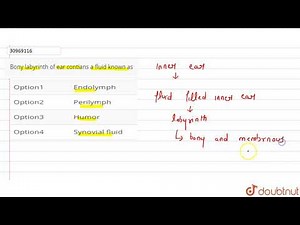 30969116
Bony labyrinth of ear contians a fluid known as
Option1 Endolymph
Option2 Perilymph
Option3 Humor
Option4 Synovial fluid
inner ear
↓
fluid filled inner ear
↓
labyrinth
↳ bony and membranous
doubtnut